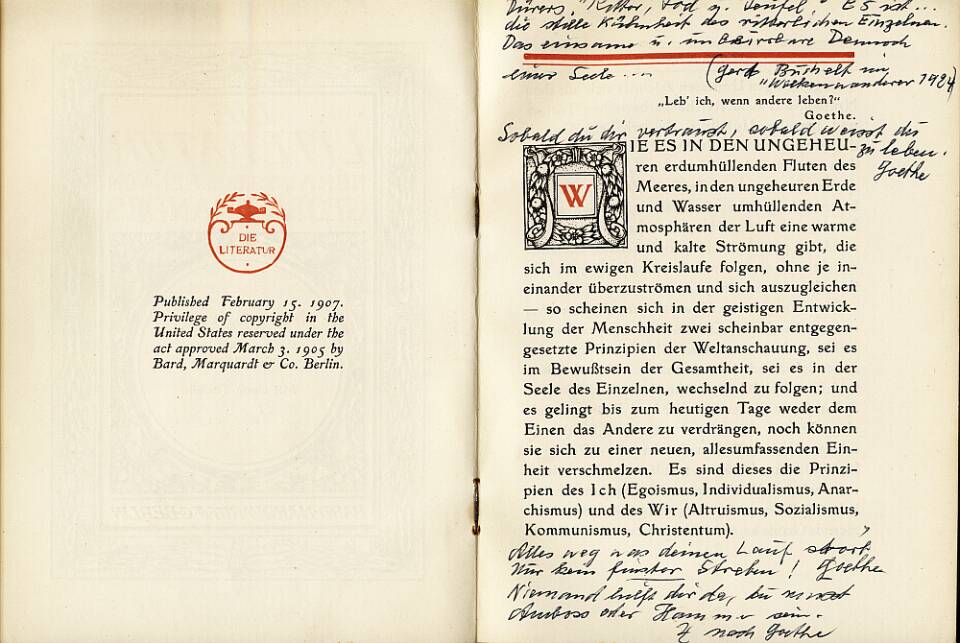 DIE
LITERATUR
Published February 15. 1907.
Privilege of copyright in the
United States reserved under the
act approved March 3. 1905 by
Bard, Marquardt & Co. Berlin.
Dürers "Ritter, Tod u. Teufel," ES ist...
die stille Kühnheit des ritterlichen Einzelnen.
Das einsame u. Dennoch
einer Seele...
(Gerd Buchelt im
"Wolkenwanderer 1924)
„Leb' ich, wenn andere leben?"
Goethe.
Sobald du dir vertraust, sobald weisst du
zu leben.
Goethe
WIE ES IN DEN UNGEHEU-
ren erdumhüllenden Fluten des
Meeres, in den ungeheuren Erde
und Wasser umhüllenden At-
mosphären der Luft eine warme
und kalte Strömung gibt, die
sich im ewigen Kreislaufe folgen, ohne je in-
einander überzuströmen und sich auszugleichen
— so scheinen sich in der geistigen Entwick-
lung der Menschheit zwei scheinbar entgegen-
gesetzte Prinzipien der Weltanschauung, sei es
im Bewußtsein der Gesamtheit, sei es in der
Seele des Einzelnen, wechselnd zu folgen; und
es gelingt bis zum heutigen Tage weder dem
Einen das Andere zu verdrängen, noch können
sie sich zu einer neuen, allesumfassenden Ein-
heit verschmelzen. Es sind dieses die Prinzi-
pien des Ich (Egoismus, Individualismus, Anar-
chismus) und des Wir (Altruismus, Sozialismus,
Kommunismus, Christentum).
Alles weg was deinen Lauf stört
Nur kein finster Streben! Goethe
Niemand hilft dir da, du musst
Amboss oder Hammer sein.
nach Goethe